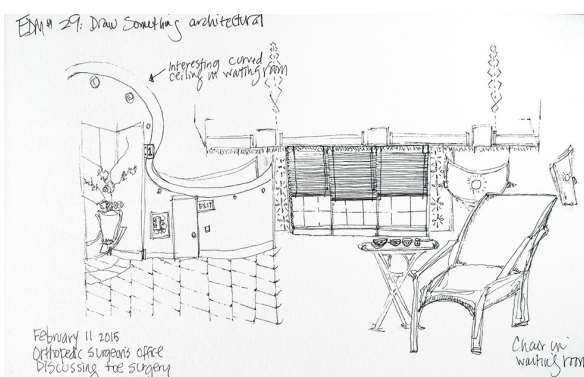 EDM # 29: Draw Something architectural
Interesting curved
ceiling in waiting room
EXIT
February 11 2015
Orthopedic surgeon's office
Discussing toe surgery
Chair in
waiting room